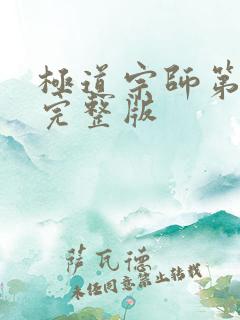 極道宗師第
完整版
萨瓦德
未经同意禁止转载